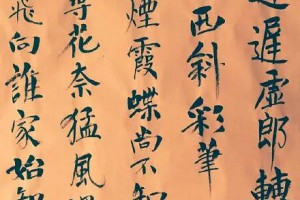 遲虛郎轉
西斜彩筆
煙霞蝶尚不知
尋花奈猛風
飛向誰家始知